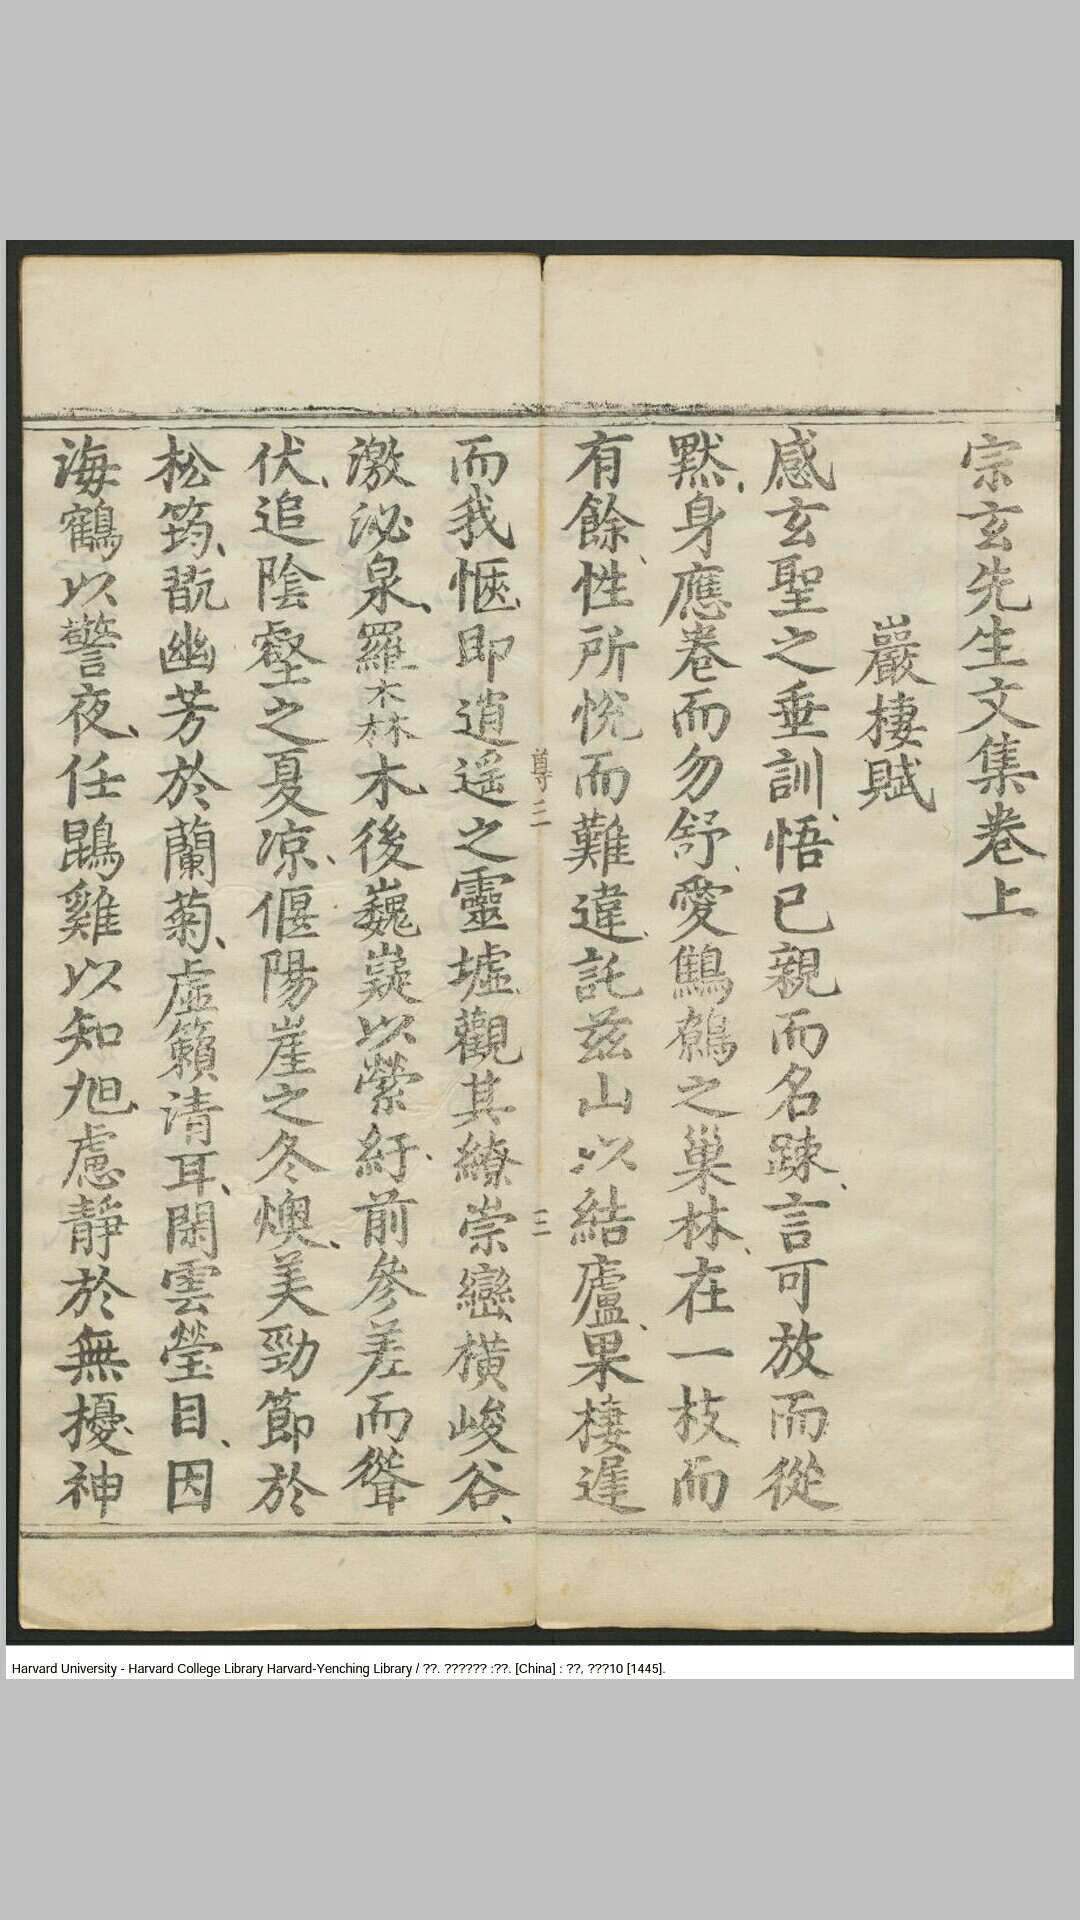 宗玄先生文集卷上
巖棲賦
感玄聖之垂訓悟已親而名踈言可放而從
默身應卷而勿舒愛鷦鷯之巢林在一枝而
有餘性所悅而難違託茲山以結廬果棲遲
而我愜即逍遥之靈墟觀其繚崇巒橫峻谷
激泌泉羅森木後巍嶷以縈紆前參差而聳
伏追陰壑之夏凉偃陽崖之冬燠美勁節於
松筠翫幽芳於蘭菊虛籟清耳閑雲瑩目因
海鶴以警夜任鵾雞以知旭慮靜於無擾神
尊三
三
Harvard University - Harvard College Library Harvard-Yenching Library / ??. ?????? :??. [China] : ??, ???10 [1445].